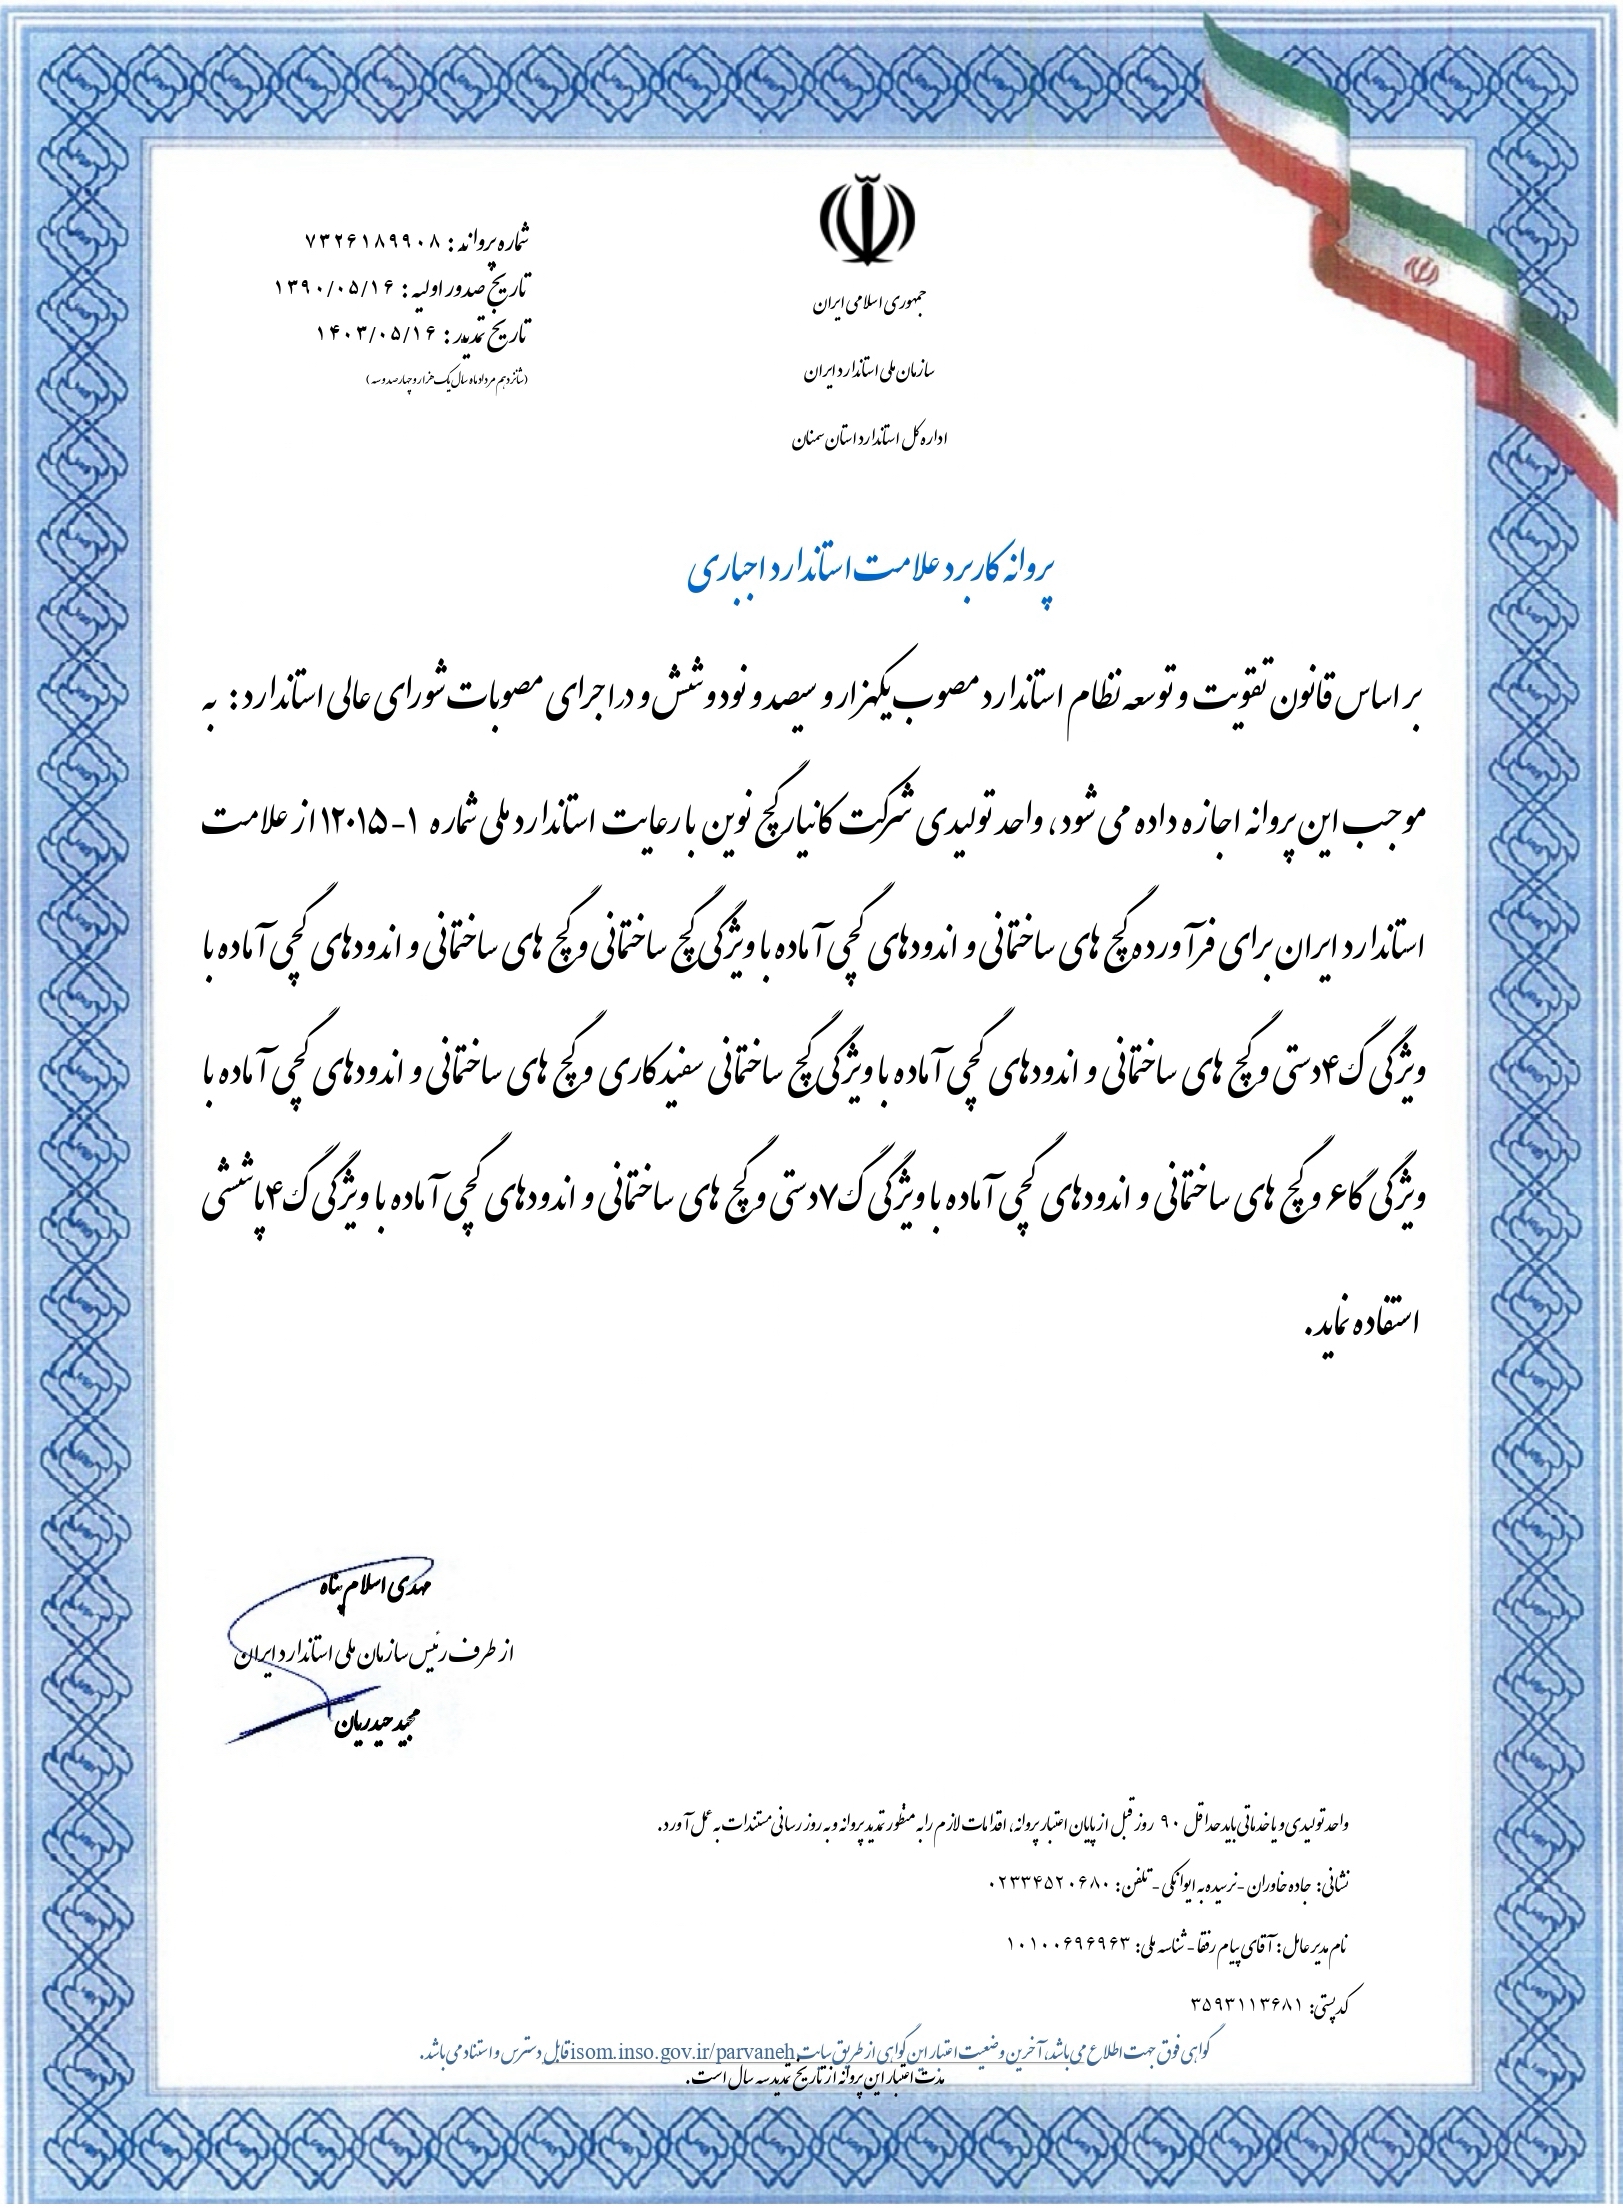 جمهوری اسلامی ایران
سازمان ملی استاندارد ایران
اداره کل استاندارد استان سمنان
شماره پروانه : ۷۳۲۶۱۸۹۹۰۸
تاریخ صدور اولیه : ۱۳۹۰/۰۵/۱۶
تاریخ تمدید : ۱۴۰۳/۰۵/۱۶
(شانزدهم مرداد ماه سال یک هزار و چهارصد و سه )
پروانه کاربرد علامت استاندارد اجباری
بر اساس قانون تقویت و توسعه نظام استاندارد مصوب یکهزار و سیصد و نود و شش و در اجرای مصوبات شورای عالی استاندارد : به
موجب این پروانه اجازه داده می شود، واحد تولیدی شرکت کانیار گچ نوین با رعایت استاندارد ملی شماره ۱-۱۲۰۱۵ از علامت
استاندارد ایران برای فرآورده گچ های ساختمانی و اندودهای گچی آماده با ویژگی گچ ساختمانی و گچ های ساختمانی و اندودهای گچی آماده با
ویژگی گ۴دستی و گچ های ساختمانی و اندودهای گچی آماده با ویژگی گچ ساختمانی سفیدکاری و گچ های ساختمانی و اندودهای گچی آماده با
ویژگی گا۶ و گچ های ساختمانی و اندودهای گچی آماده با ویژگی گ۷دستی و گچ های ساختمانی و اندودهای گچی آماده با ویژگی گ۴پاششی
استفاده نماید.
مهدی اسلام پناه
از طرف رئیس سازمان ملی استاندارد ایران
مجید حیدریان
واحد تولیدی و یا خدماتی باید حداقل ۹۰ روز قبل از پایان اعتبار پروانه، اقدامات لازم را به منظور تمدید پروانه و به روز رسانی مستندات به عمل آورد.
نشانی: جاده خاوران - نرسیده به ایوانکی - تلفن: ۰۲۳۳۴۵۲۰۶۸۰
نام مدیر عامل: آقای پیام رفقا - شناسه ملی: ۱۰۱۰۰۶۹۶۹۶۳
کد پستی: ۳۵۹۳۱۱۳۶۸۱
گواهی فوق جهت اطلاع می باشد، آخرین وضعیت اعتبار این گواهی از طریق سایت isom.inso.gov.ir/parvaneh قابل دسترس و استناد می باشد.
مدت اعتبار این پروانه از تاریخ تمدید سه سال است.